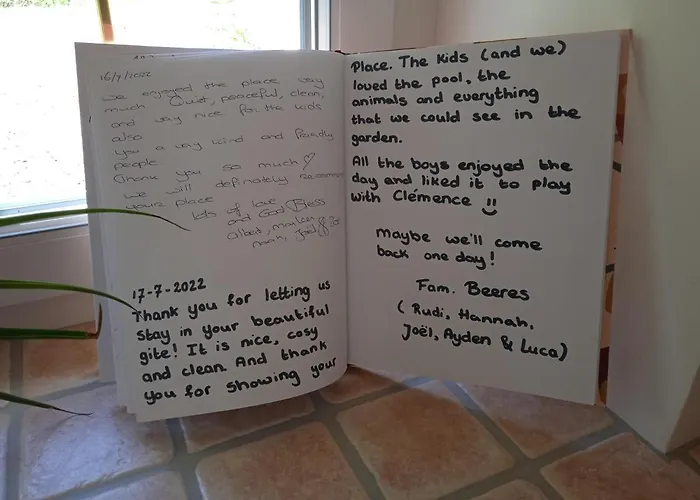 16/7/2022
we enjoyed the place very
much Quiet, peaceful, clean,
and very nice for the kids
also
you a very kind and friendly
people.
Thank you so much ♡
we will definitely
your place
lots of love
and God Bless
Albert,
Noah, Joël
17-7-2022
Thank you for letting us
stay in your beautiful
gite! It is nice, cosy
and clean. And thank
you for showing your
Place. The kids (and we)
loved the pool, the
animals and everything
that we could see in the
garden.
All the boys enjoyed the
day and liked it to play
with Clémence
maybe we'll come
back one day!
Fam. Beeres
(Rudi, Hannah,
Joël, Ayden & Luca)